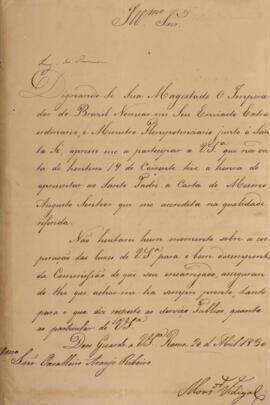 Illmo Snr.
Dignando se Sua Magestade O Impera-
dor do Brazil Nomear me Seu Enviado Extra-
ordinario, e Ministro Plenipotenciario junto à San-
ta Sé, apresso me a participar a VSa. que na da-
ta de hontem 19 do Corrente tive a honra de
apresentar ao Santo Padre a Carta do Mesmo
Augusto Senhor que me acredita na qualidade
referida.
Não hesitarei hum momento sobre a coo-
peração das luzes de VSa. para o bom desempenho
da Commissão de que sou encarregado, asseguran-
do lhe que achar me ha sempre prompto, tanto
para o que diz respeito ao serviço Publico, quanto
ao particular de VSa.
Deos Guarde a VSa. Roma 20 de Abril 1830
Illmo
Snr Cavalheiro Araujo Ribeiro
Monsr. Vidigal